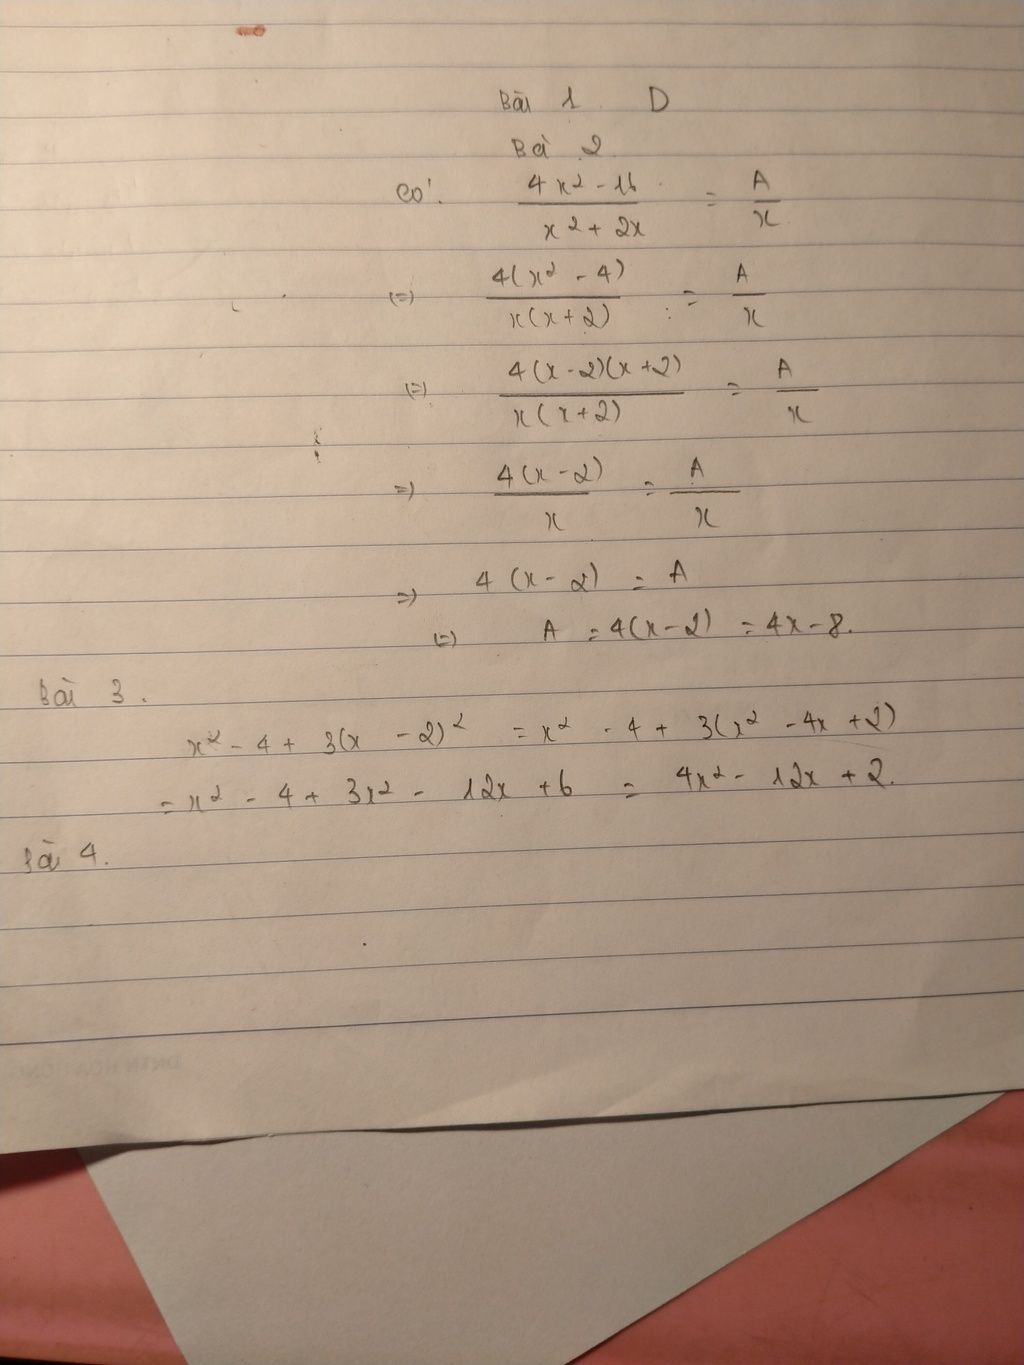 Bài 1 D
Bài 2
Có: 4x² - 16 / x² + 2x = A / x
(=) 4(x² - 4) / x(x + 2) = A / x
(=) 4(x - 2)(x + 2) / x(x + 2) = A / x
=) 4(x - 2) / x = A / x
=) 4(x - 2) = A
(=) A = 4(x - 2) = 4x - 8.
Bài 3.
x² - 4 + 3(x - 2)² = x² - 4 + 3(x² - 4x + 2)
= x² - 4 + 3x² - 12x + 6 = 4x² - 12x + 2.
Bài 4.